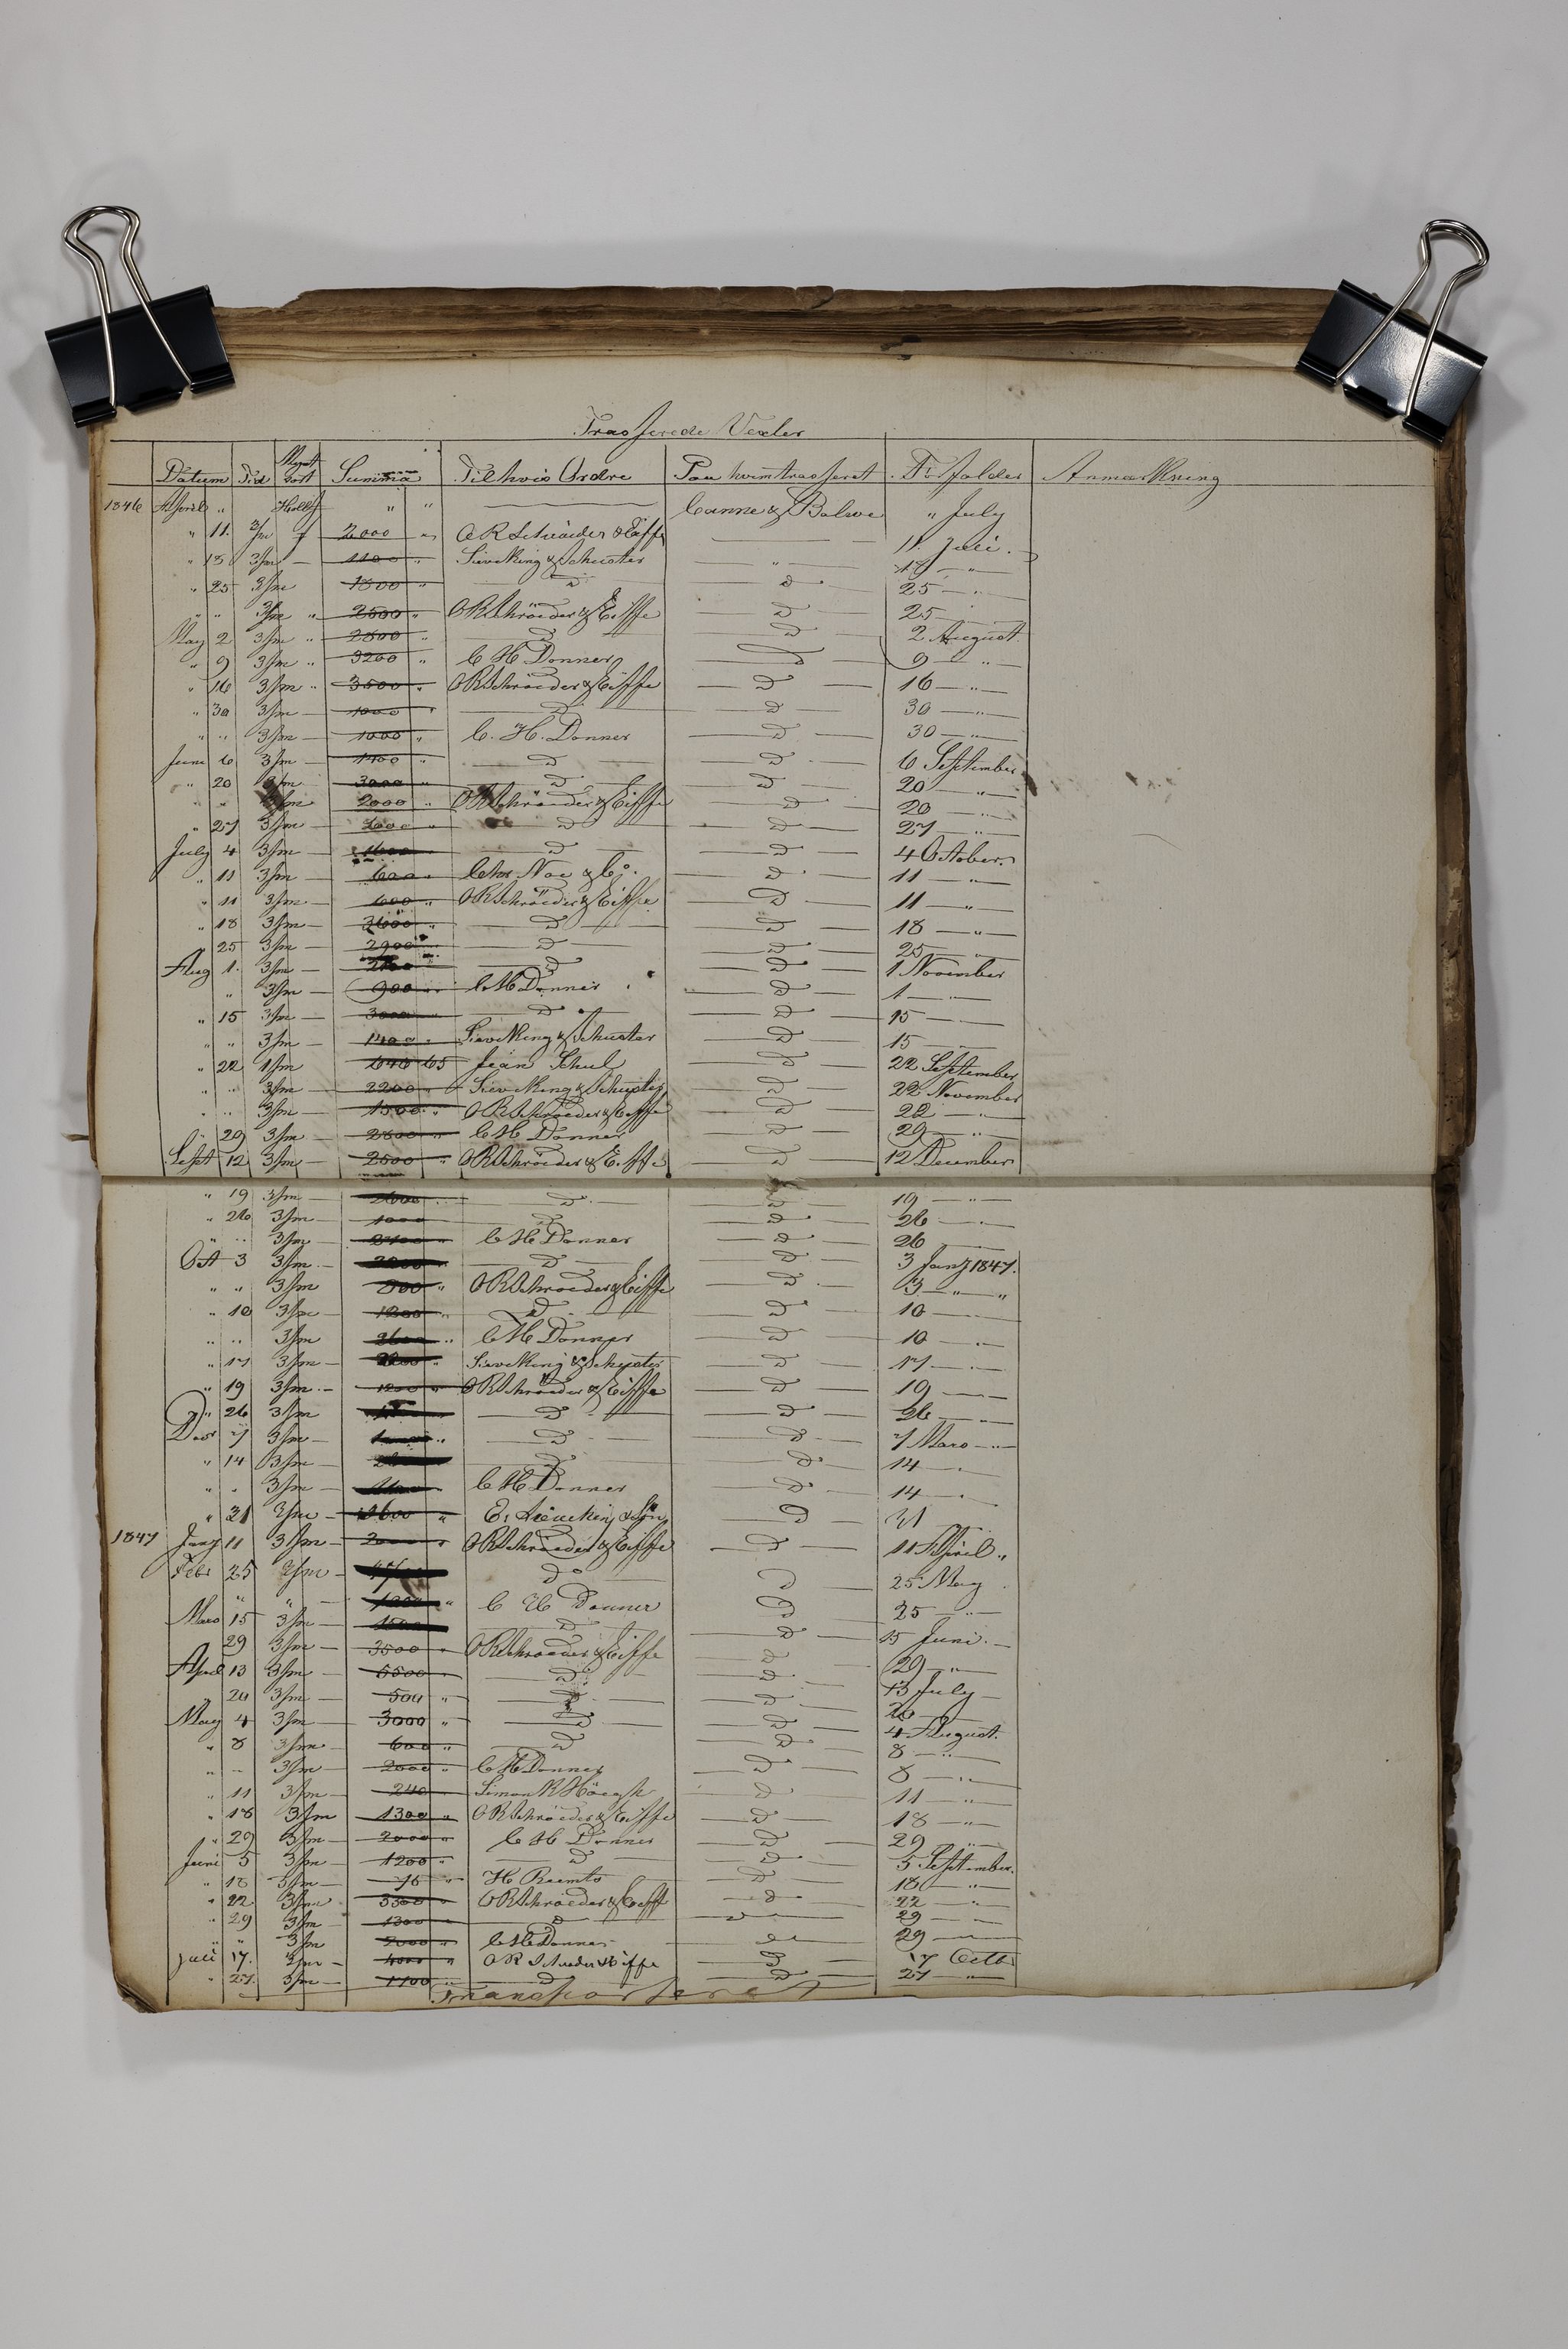 Trasserede Vexler
Datum Tid Mynt Sort Summa Til hvis Ordre Paa hvem trasseret Forfalder Anmærkning
1846 April " Holl " " Canne & Balwe " July
" 11. 3/m f 2000 " O R Schröder & Eiffe 11 Juli.
" 18 3/m 1100 " Sieveking & Schuster " 18 "
" 25 3/m 1800 " D D 25 "
" " 3/m " 2500 " O R Schröder & Eiffe D 25
May 2 3/m " 2800 " D D 2 August
" 9 3/m " 3200 " C H Donner D 9 "
" 16 3/m " 3500 " O R Schröder & Eiffe D 16 "
" 30 3/m 1000 " D D 30 "
" " 3/m 1000 " C. H. Donner D 30 "
Juni 6 3/m 1400 " D D 6 September
" 20 3/m 3000 " D D 20 "
" " 3/m 2000 " O R Schröder & Eiffe D 20
" 27 3/m " D D 27 "
July 4 3/m 1600 " D D 4 October
" 11 3/m 600 " & Co. D 11 "
" 11 3/m 600 " O R Schröder & Eiffe D 11 "
" 18 3/m 3600 " D D 18 "
" 25 3/m 2900 " D D 25 "
Aug 1. 3/m D D 1 November
" 3/m 900 " C H Donner D 1 "
" 15 3/m 3000 " D D 15
" " 3/m 1400 " Sieveking & Schuster D 15
" 22 1/m 646 65 Jean Schul D 22 September
" " 3/m 2200 " Sieveking & Schuster D 22 November
" " 3/m 1500 " O R Schroeder & Eiffe D 22 "
" 29 3/m 2800 " C H Donner D 29 "
Sept 12 3/m 2500 " O R Schröder & Eiffe D 12 December
" 19 3/m 2600 D D 19 "
" 26 3/m 1000 D D 26 "
" " 3/m " C H Donner D 26
Oct 3 3/m D D 3 Janŷ 1847.
" " 3/m " O R Schroeder & Eiffe D 3 " "
" 10 3/m 1200 " D D 10 "
" " 3/m 2600 " C H Donner D 10 "
" 17 3/m " Sieveking & Schuster D 17 "
" 19 3/m 1200 " O R Schröder & Eiffe D 19
" 26 3/m D D 26 "
Decr 7 3/m " D D 7 Mars "
" 14 3/m D D 14
" " 3/m C H Donner D 14
" 21 3/m 2600 " E. Sieveking & Sön D 21
1847 Janŷ 11 3/m " O R Schröder & Eiffe D 11 April "
Febr 25 3/m Do D 25 May
" " 1200 " C H Donner D 25 "
Mars 15 3/m 1500 D D 15 Juni.
29 3/m 3500 " O R Schroeder & Eiffe D 29 "
April 13 3/m 5500 " D D 13 July
" 20 3/m 500 " D D 20
May 4 3/m 3000 " D D 4 August.
" 8 3/m 600 " D D 8 "
" " 3/m 2000 " C H Donner D 8 "
" 11 3/m 240 " Simon R D 11 "
" 18 3/m 1300 " O R Schröder & Eiffe D 18 "
" 29 3/m 2000 " C H Donner D 29 "
Juni 5 3/m 1200 " D D 5 September.
" 18 3/m 76 " H Reemts D 18 "
" 22 3/m 3300 " O R Schroeder & Eiffe D 22 "
" 29 3/m 1300 " D D 29 "
" " 3/m 2000 " C H Donner D 29
Juli 17. 3/m 4000 " O R Schröder & Eiffe D 17 Octb
" 27. 3/m 1100 " D D 27 "
Transporteret